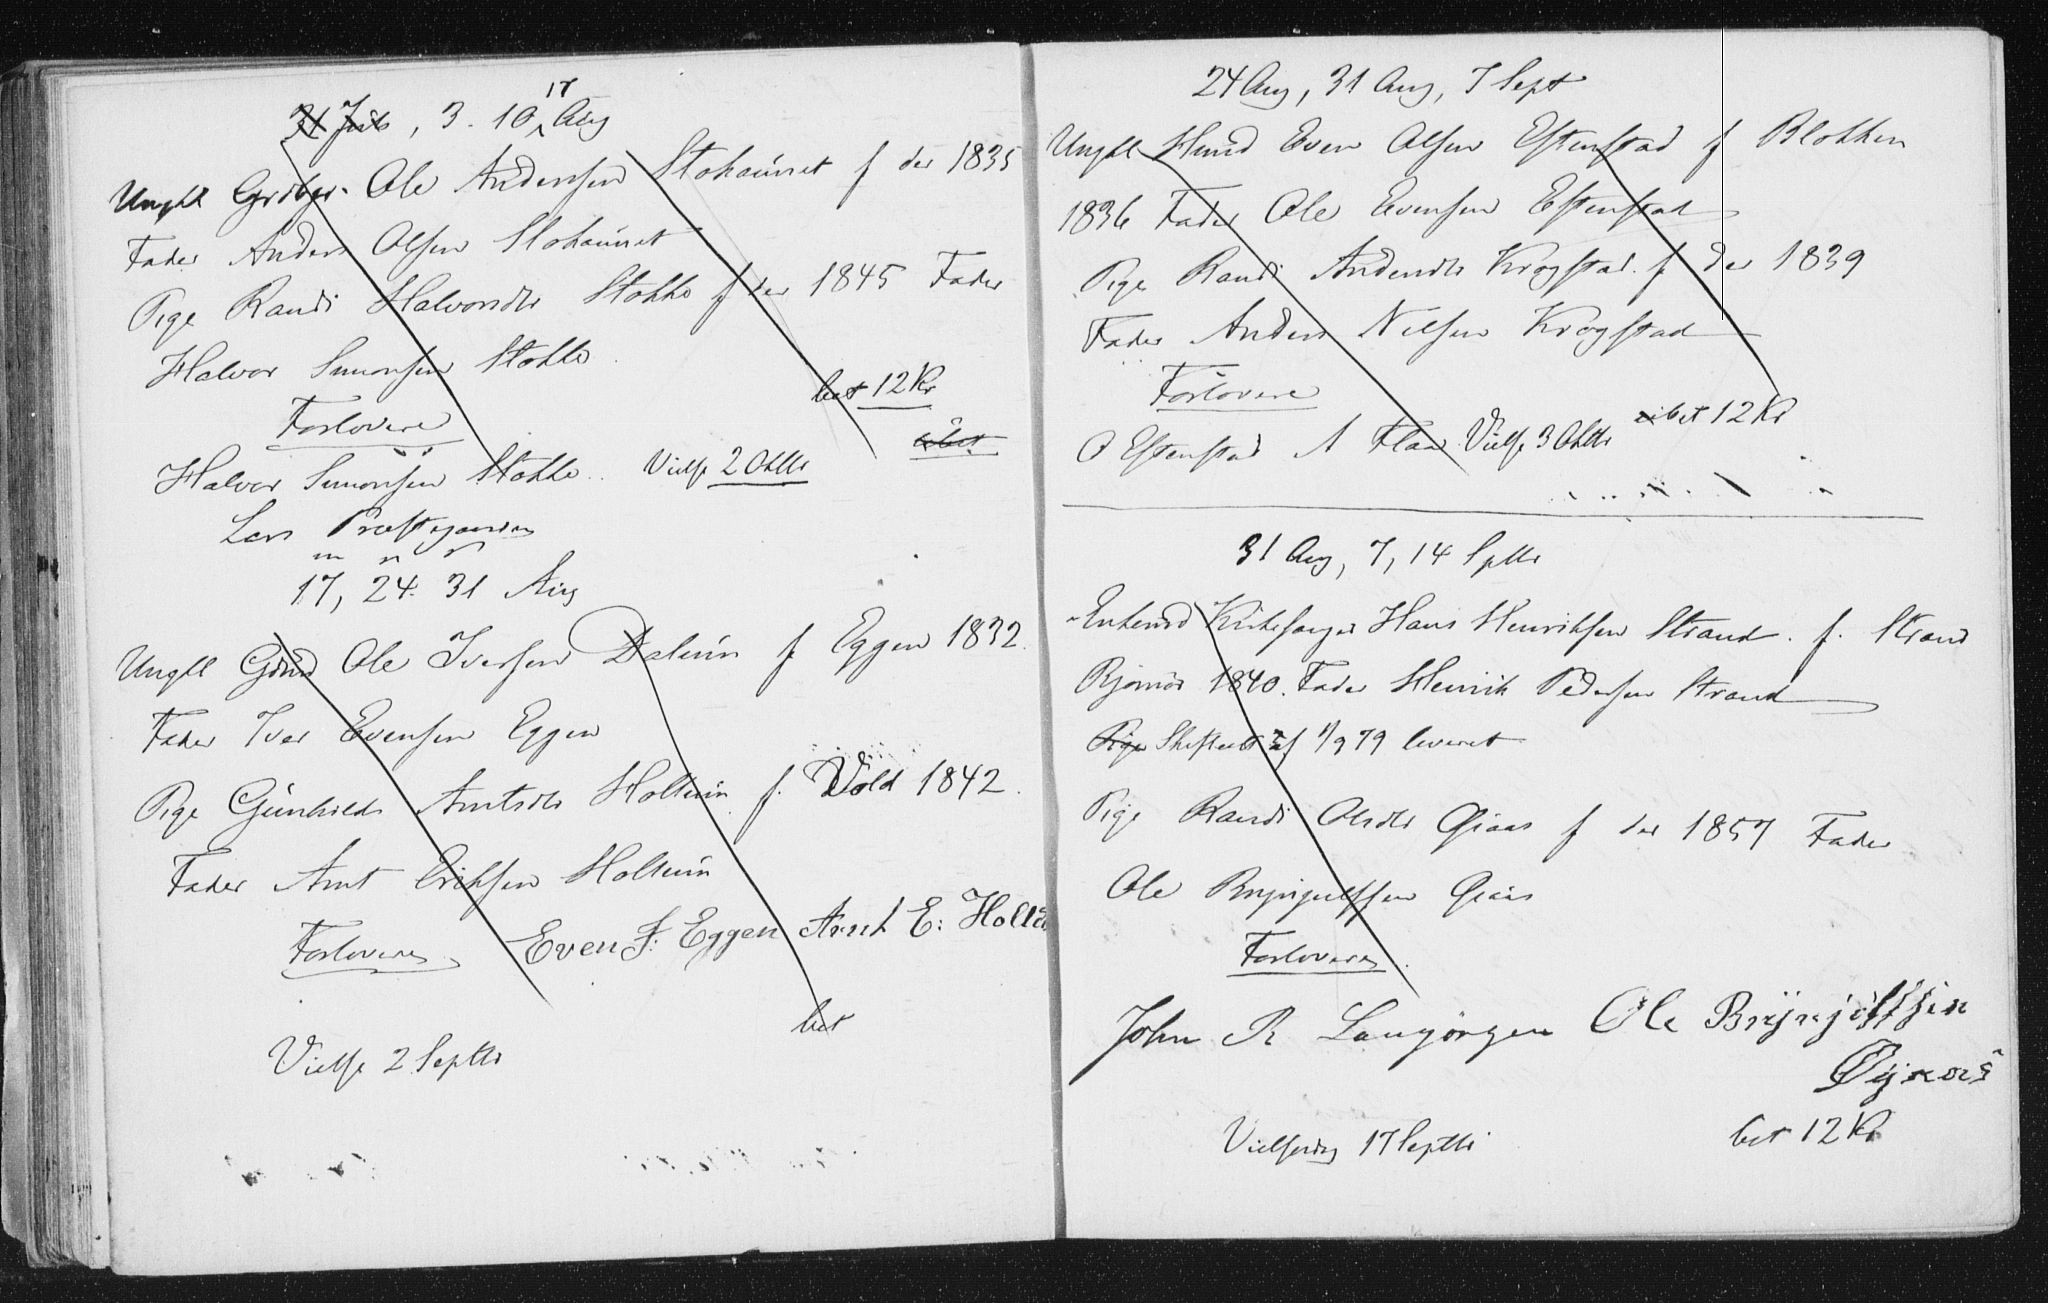 31 Juli, 3. 10 17 Aug
Ungkl Grdbr. Ole Andersen Stokaunet f der 1835
Fader Anders Olsen Stokaunet
Pige Randi Halvorsdtr Stokke f der 1845 Fader
Halvor Simonsen Stokke
bet 12 Kr
Forlovere
ebet.
Halvor Simonsen Stokke. Vielse 2 Oktbr
Lars Præstegaarden
17, 24. 31 Aug
Ungkl Grdmd Ole Iversen Dalum f Eggen 1832.
Fader Iver Evensen Eggen
Pige Gunhild Arntsdtr Holtum f. Vold 1842.
Fader Arnt Eriksen Holtum
Forlovere Even J: Eggen Arnt E: Holtu
bet
Vielse 2 Septbr
24 Aug, 31 Aug, 7 Sept
Ungkl Husmd Even Olsen Estenstad f Blokken
1836 Fader Ole Evensen Estenstad
Pige Randi Andersdtr Krogstad. f der 1839
Fader Anders Nilsen Krogstad
Forlovere
O Estenstad A Flaa. Vielse 3 Oktbr ebet 12 Kr
31 Aug, 7, 14 Septbr
Enkemd Kirkesanger Hans Henriksen Strand. f. Strand
Bjørnør 1840. Fader Henrik Pedersen Strand
Pige Skifteatt af 1/9 79 leveret
Pige Randi Olsdtr Øiaas f der 1857 Fader
Ole Brynjulfsen Øiaas
Forlovere.
John R Langørgen Ole Brynjulfsen
Øyaas
Vielsesdag 17 Septbr bet 12 Kr